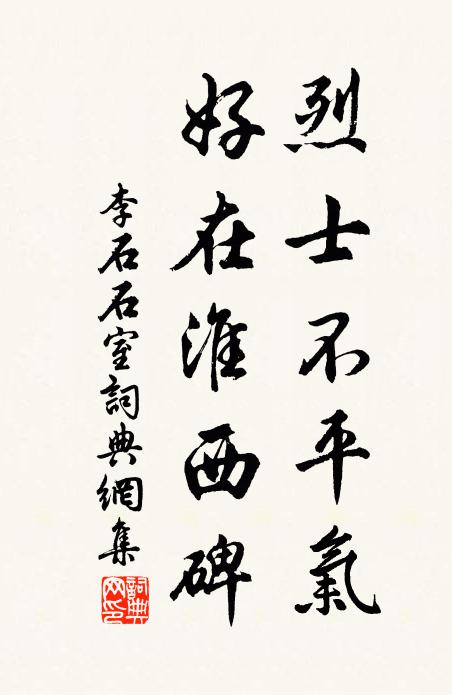 烈士不平氣
好在淮西碑
李石石室詞典網集
詞典網印